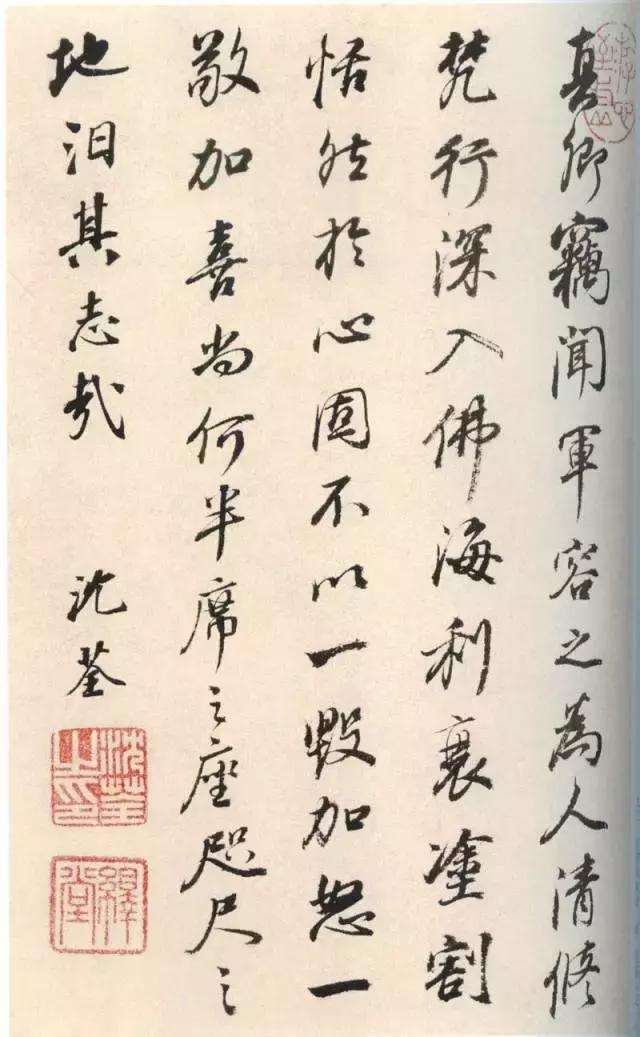 真卿竊聞軍容之為人清修
梵行深入佛海利衰塗割
恬然於心固不以一毀加怒一
敬加喜尚何半席之座咫尺之
地汩其志哉
沈荃
沈荃之印
繹堂